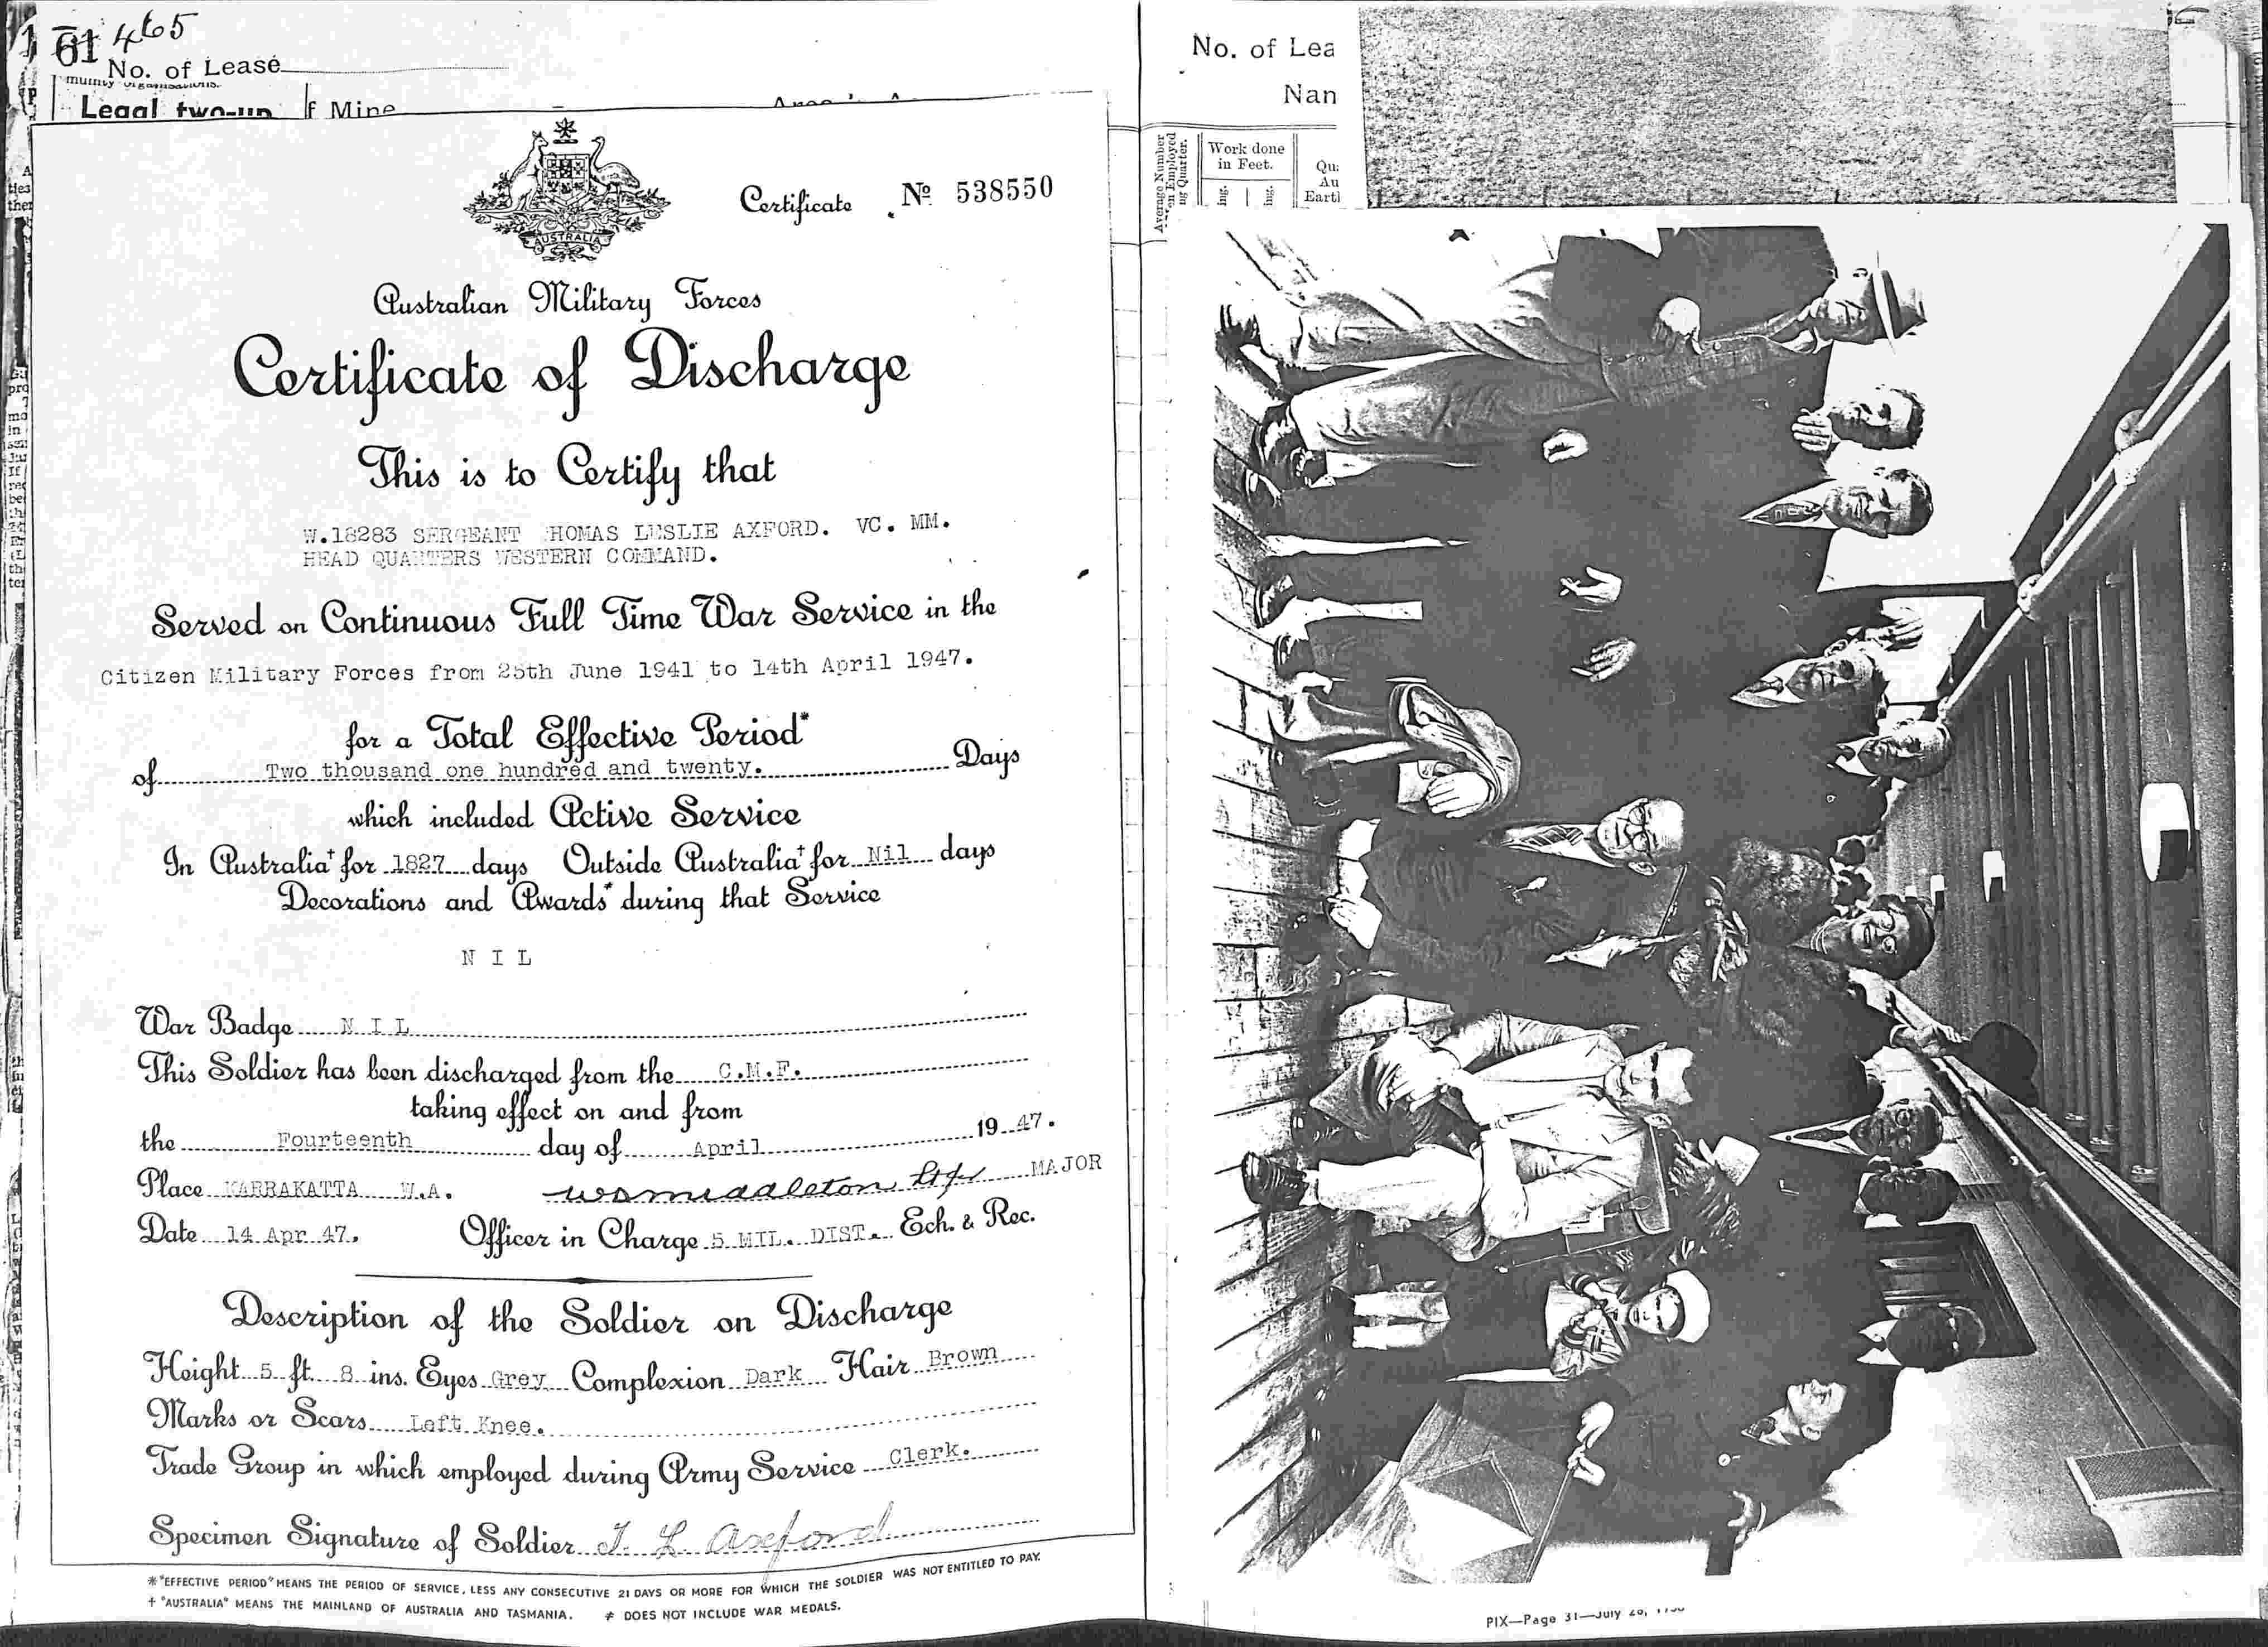 61 465
No. of Lease
Legal two-up f Mine
AUSTRALIA
Certificate No. 538550
Australian Military Forces
Certificate of Discharge
This is to Certify that
W.18283 SERGEANT THOMAS LESLIE AXFORD. VC. MM.
HEAD QUARTERS WESTERN COMMAND.
Served on Continuous Full Time War Service in the
Citizen Military Forces from 25th June 1941 to 14th April 1947.
for a Total Effective Period*
of Two thousand one hundred and twenty. Days
which included Active Service
In Australia† for 1827 days Outside Australia† for Nil days
Decorations and Awards≠ during that Service
N I L
War Badge N I L
This Soldier has been discharged from the C.M.F.
taking effect on and from
the Fourteenth day of April 19 47.
Place KARRAKATTA W.A. MAJOR
Date 14 Apr 47. Officer in Charge 5 MIL. DIST. Ech. & Rec.
Description of the Soldier on Discharge
Height 5 ft. 8 ins. Eyes Grey Complexion Dark Hair Brown
Marks or Scars Left Knee.
Trade Group in which employed during Army Service Clerk.
Specimen Signature of Soldier T. L. Axford
* "EFFECTIVE PERIOD" MEANS THE PERIOD OF SERVICE, LESS ANY CONSECUTIVE 21 DAYS OR MORE FOR WHICH THE SOLDIER WAS NOT ENTITLED TO PAY.
† "AUSTRALIA" MEANS THE MAINLAND OF AUSTRALIA AND TASMANIA. ≠ DOES NOT INCLUDE WAR MEDALS.
No. of Lea
Nan
Average Number
en Employed
ng Quarter.
Work done
in Feet.
ing.
ing.
Qu
Au
Eartl
PIX—Page 31—July